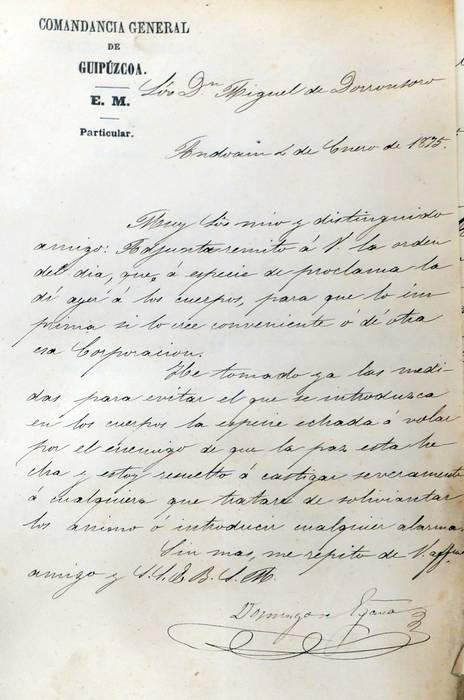 COMANDANCIA GENERAL
DE
GUIPÚZCOA.
E. M.
Particular.
Sor Dn Miguel de Dorronsoro
Andoain 2 de Enero de 1875.
Muy Sor mio y distinguido
amigo: Adjunta remito á V. la orden
del dia, que, á especie de proclama la
dí ayer á los cuerpos, para que lo im
prima si lo cree conveniente ó dé otra
esa Corporacion.
He tomado ya las medi
das para evitar el que se introduzca
en los cuerpos la especie echada á volar
por el enemigo de que la paz esta he
cha y estoy resuelto á castigar severamente
á cualquiera que tratare de soliviantar
los animo ó introducir cualquier alarma.
Sin mas, me repito de V. affmo
amigo y S. S. E. B. S. M.
Domingo de Egaña